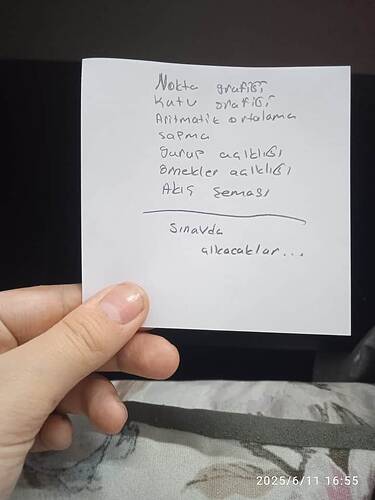 Nokta grafiği
Kutu grafiği
Aritmatik ortalama
sapma
Gurup açıklığı
örnekler açıklığı
Akış şeması
Sınavda
çıkacaklar...
2025/6/11 16:55